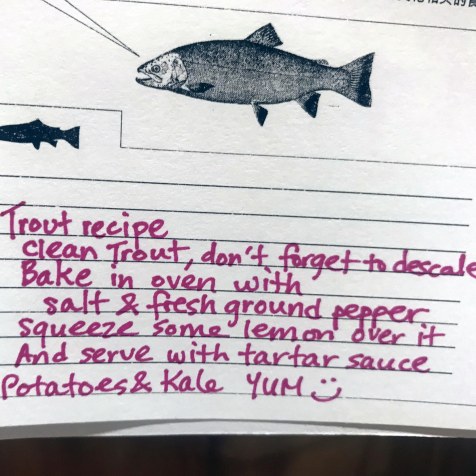 Trout recipe
clean Trout, don't forget to descale
Bake in oven with
salt & fresh ground pepper
squeeze some lemon over it
And serve with tartar sauce
Potatoes & Kale YUM